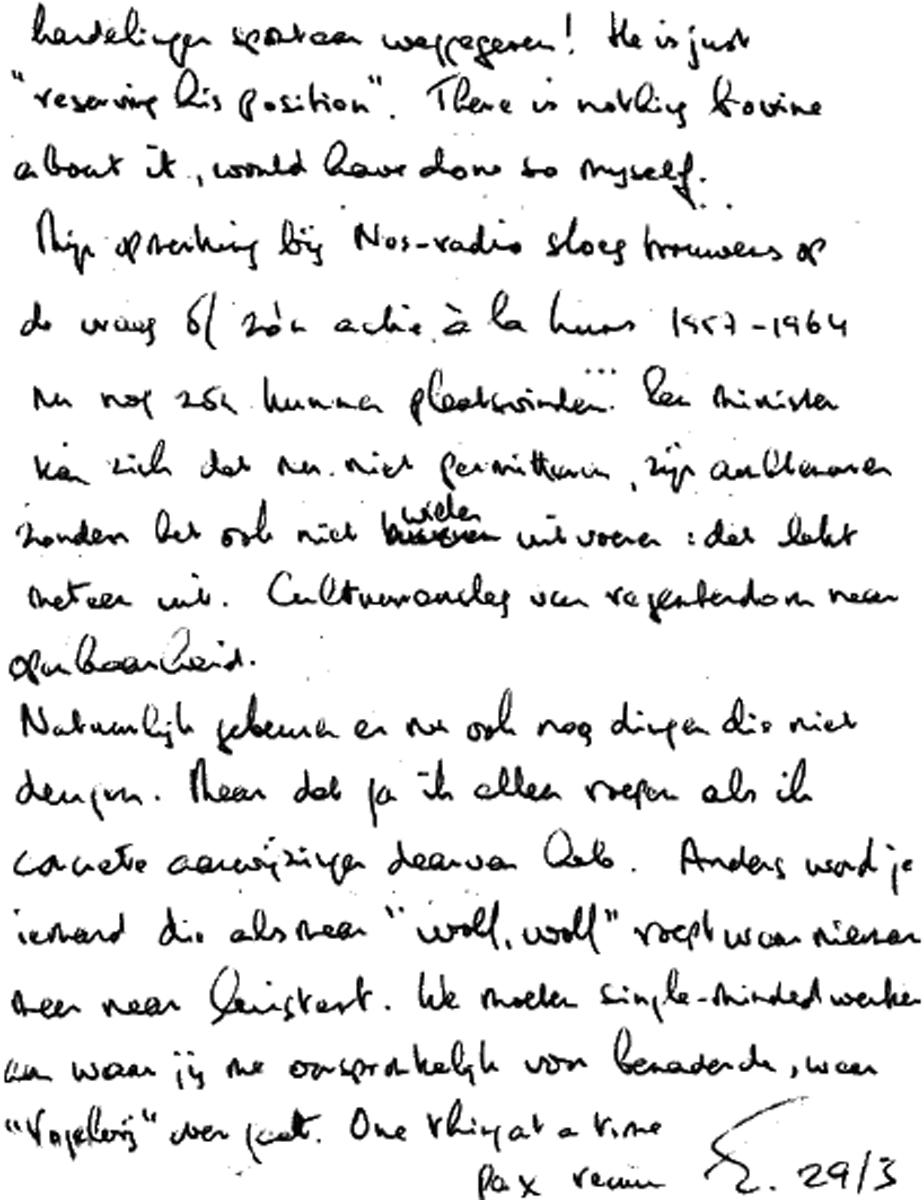 handelingen spontaan weggegeven! He is just
"reserving his position". There is nothing bovine
about it, would have done so myself.
Mijn opmerking bij Nos-radio sloeg trouwens op
de vraag óf zo'n actie à la Luns 1957-1964
nu nog zou kunnen plaatsvinden... Een minister
kan zich dat nu niet permitteren, zijn ambtenaren
zouden het ook niet willen uitvoeren: dat lekt
meteen uit. Cultuuromslag van regentendom naar
openbaarheid.
Natuurlijk gebeuren er nu ook nog dingen die niet
deugen. Maar dat ga ik alleen roepen als ik
concrete aanwijzingen daarvan heb. Anders word je
iemand die alsmaar "wolf, wolf" roept waar niemand
meer naar luistert. We moeten single-minded werken
aan waar jij me oorspronkelijk voor benaderde, waar
"Vogelvrij" over gaat. One thing at a time
29/3